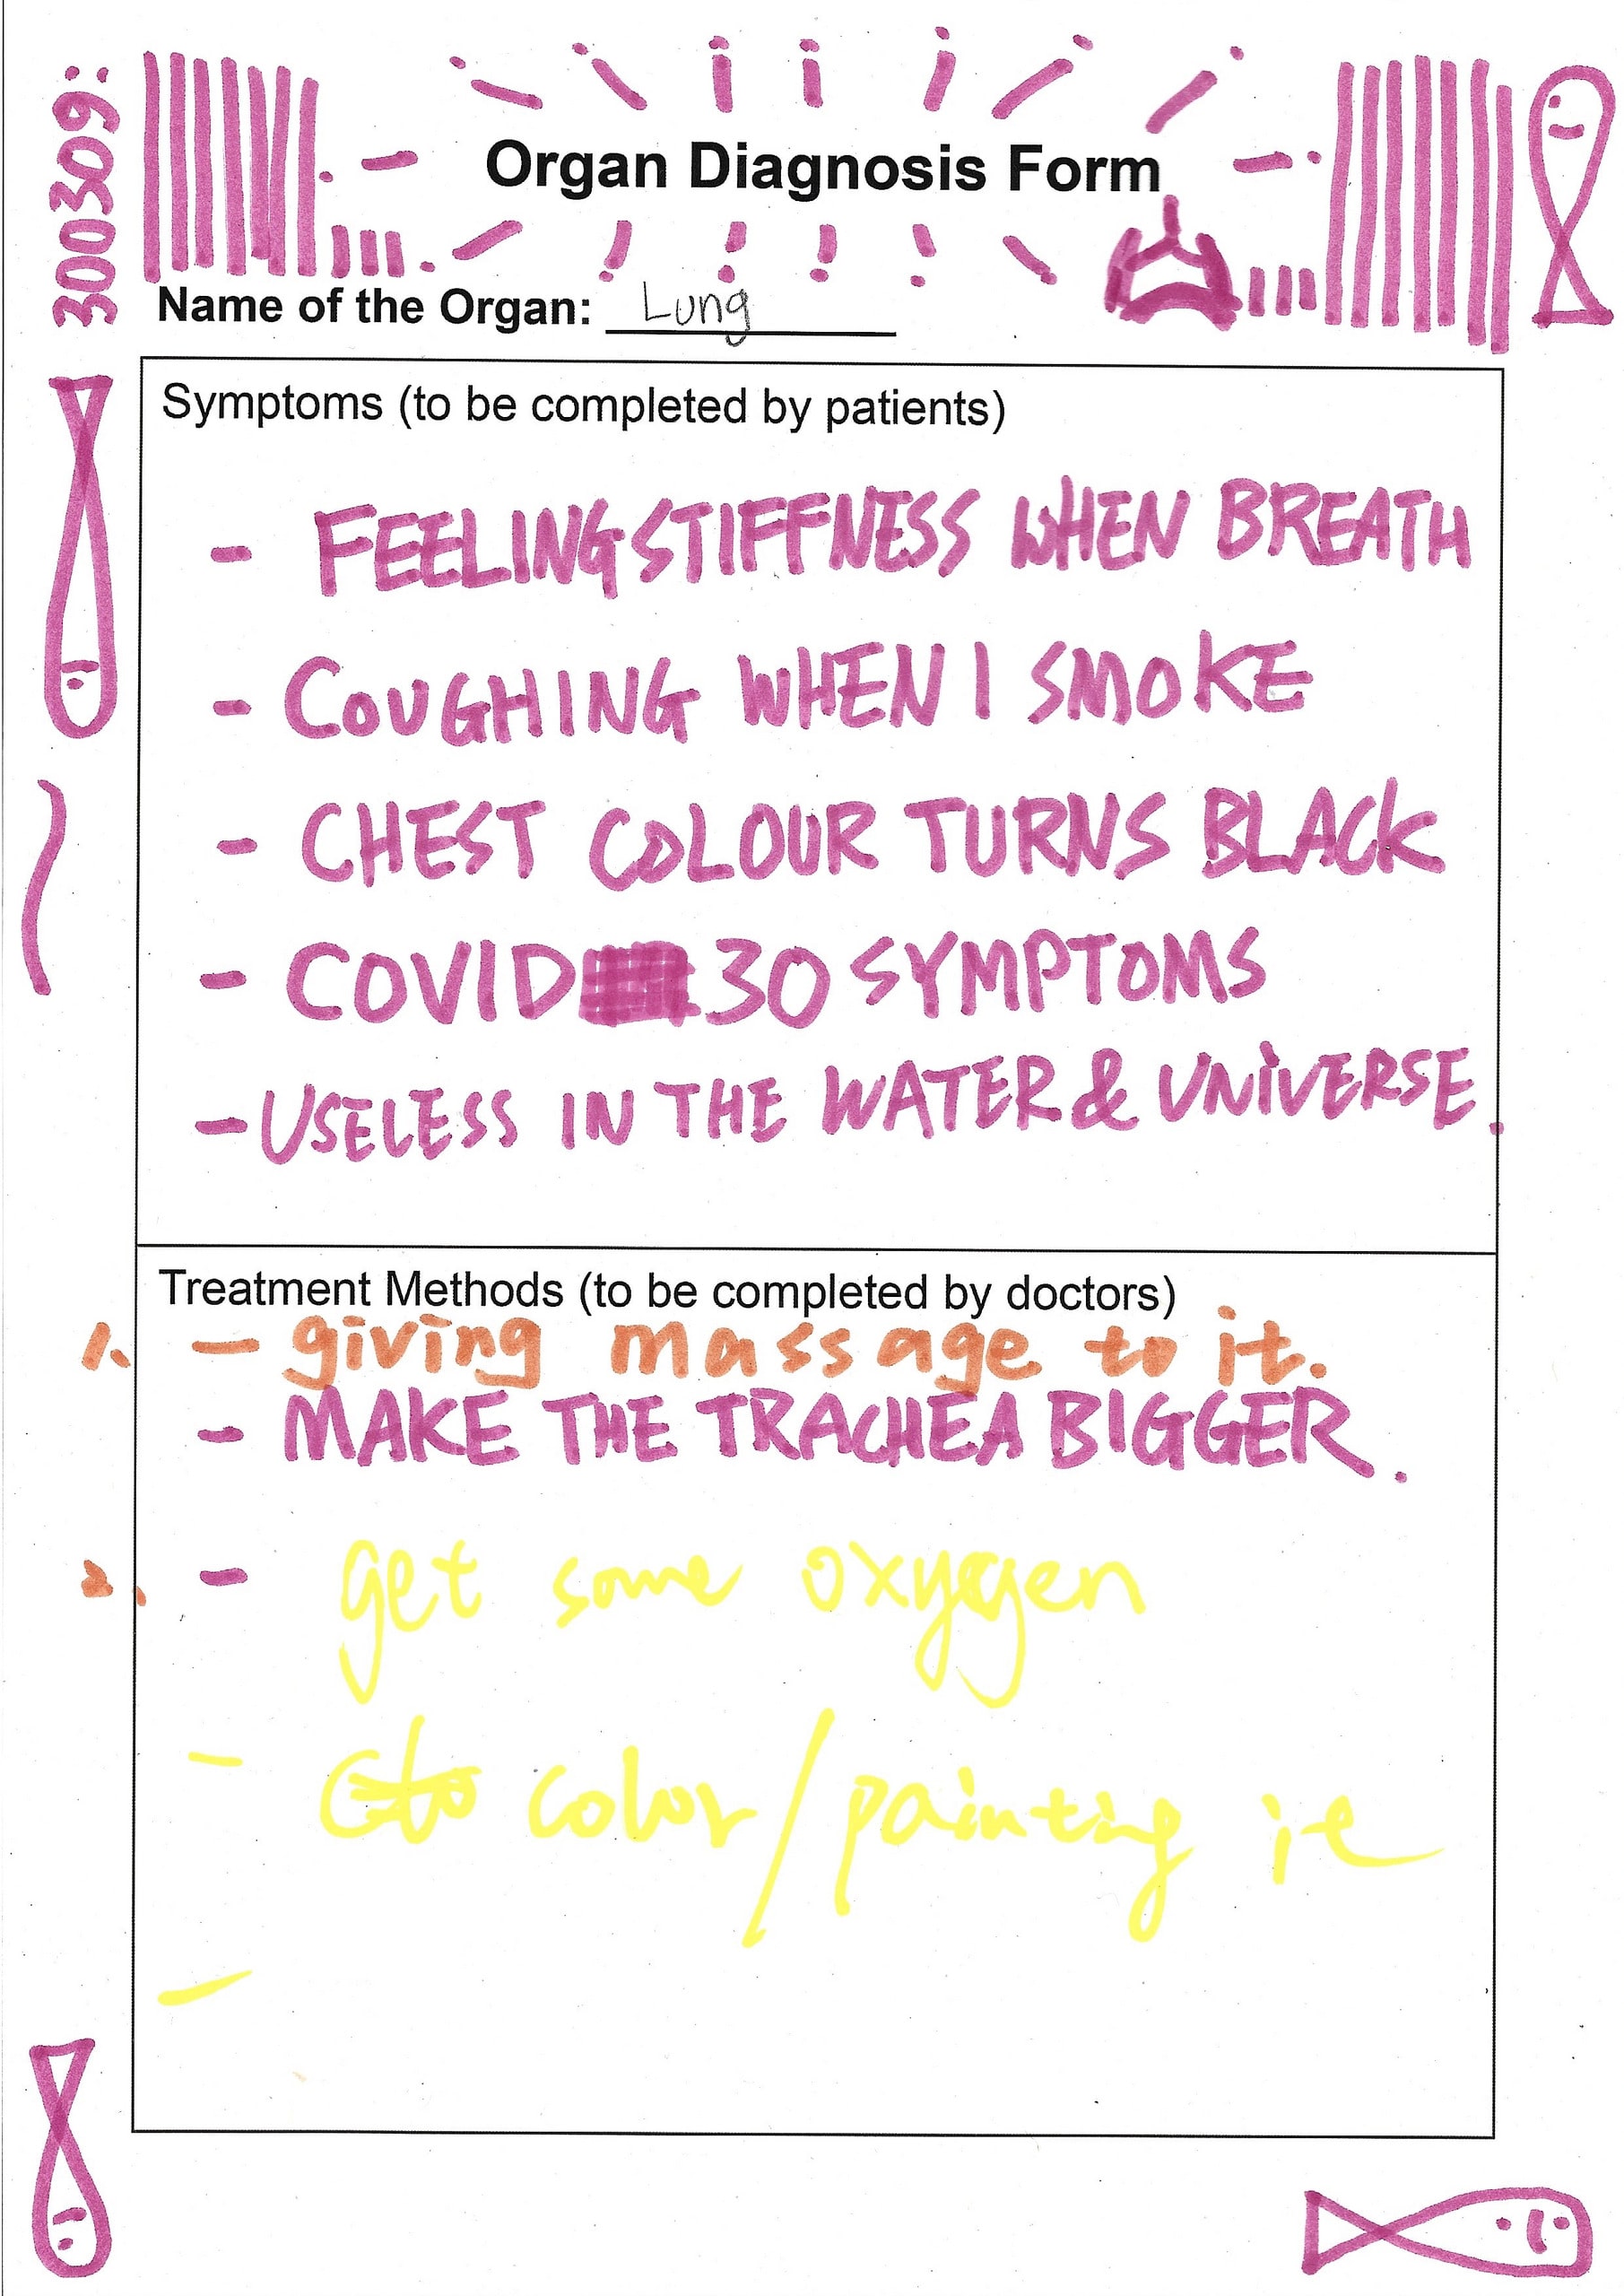 300309:
Organ Diagnosis Form
Name of the Organ: Lung
Symptoms (to be completed by patients)
- FEELING STIFFNESS WHEN BREATH
- COUGHING WHEN I SMOKE
- CHEST COLOUR TURNS BLACK
- COVID 30 SYMPTOMS
- USELESS IN THE WATER & UNIVERSE.
Treatment Methods (to be completed by doctors)
1. - giving massage to it.
- MAKE THE TRACHEA BIGGER.
2. - get some oxygen
- color/painting it
-